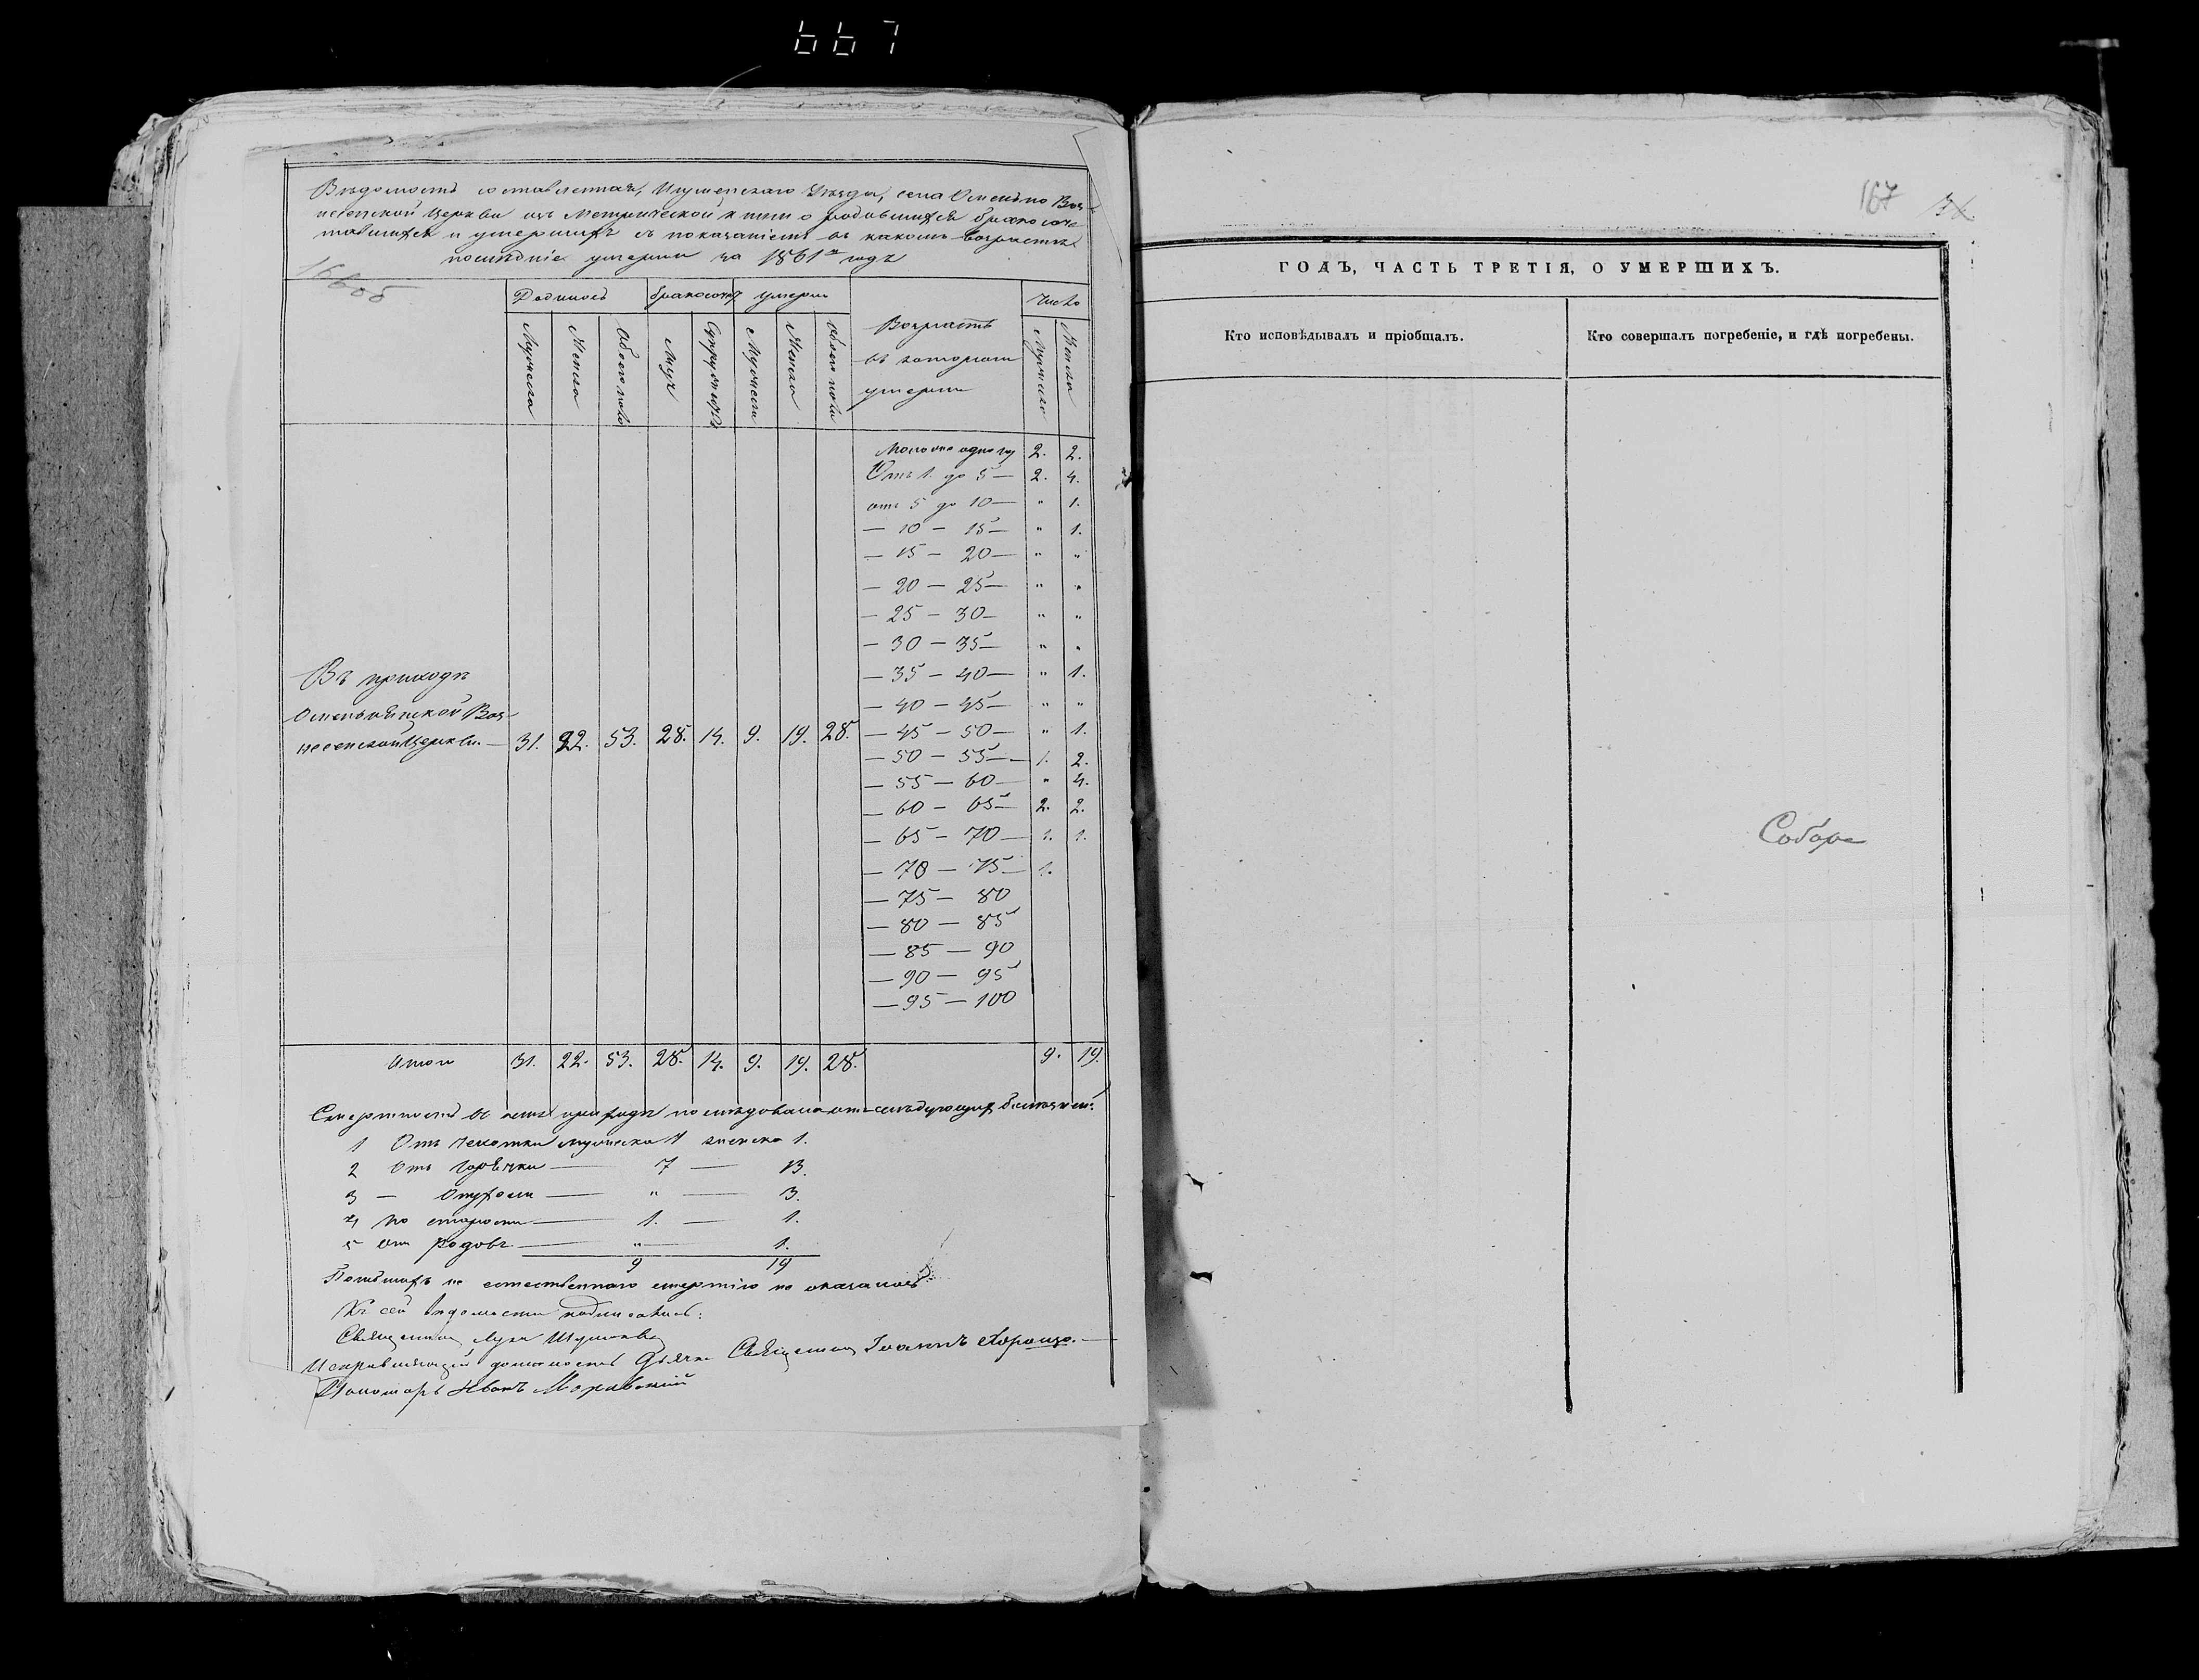 667
Вѣдомость составленная, Игуменскаго Уѣзда, села Омельно Воз-
несенской Церкви изъ Метрической книги о родившихся бракосоче-
тавшихся и умершихъ съ показаніемъ въ какомъ возрастѣ
послѣдніе умерли за 1861й годъ
166об
Родилось бракосоч умерли Число
Мужеска Женска Обоего пола Мужъ Супружествъ Мужеска Женска обоего пола Возрастъ въ которомъ умерли Мужеска Женска
Моложе одного 2. 2.
Отъ 1. до 5 — 2. 4.
отъ 5 до 10 — " 1.
— 10 — 15 — " 1.
— 15 — 20 — " "
— 20 — 25 — " "
— 25 — 30 — " "
— 30 — 35 — " "
— 35 — 40 — " 1.
— 40 — 45 — " "
Въ приходѣ
Омельнянской Воз-
несенской Церкви. — 31. 22. 53. 28. 14. 9. 19. 28. — 45 — 50 — " 1.
— 50 — 55 — 1. 2.
— 55 — 60 — " 4.
— 60 — 65 — 2. 2.
— 65 — 70 — 1. 1.
— 70 — 75 — 1.
— 75 — 80
— 80 — 85
— 85 — 90
— 90 — 95
— 95 — 100
Итого 31. 22. 53. 28. 14. 9. 19. 28. 9. 19.
Смертность въ семъ приходѣ послѣдовала отъ слѣдующихъ болѣзней:
1 Отъ чахотки мужеска 1 женска 1.
2 Отъ горячки — 7 — 13.
3 — Опухоли — " — 3.
4 По старости — 1. — 1.
5 Отъ родовъ — " — 1.
9 19
Погибшихъ не естественною смертію не оказалось
Къ сей вѣдомости подписались:
Священникъ Лука
Исправляющій должность Дьячка Священникъ Іоаннъ
Пономарь Иванъ
167
ГОДЪ, ЧАСТЬ ТРЕТІЯ, О УМЕРШИХЪ.
Кто исповѣдывалъ и пріобщалъ. Кто совершалъ погребеніе, и гдѣ погребены.
Соборе